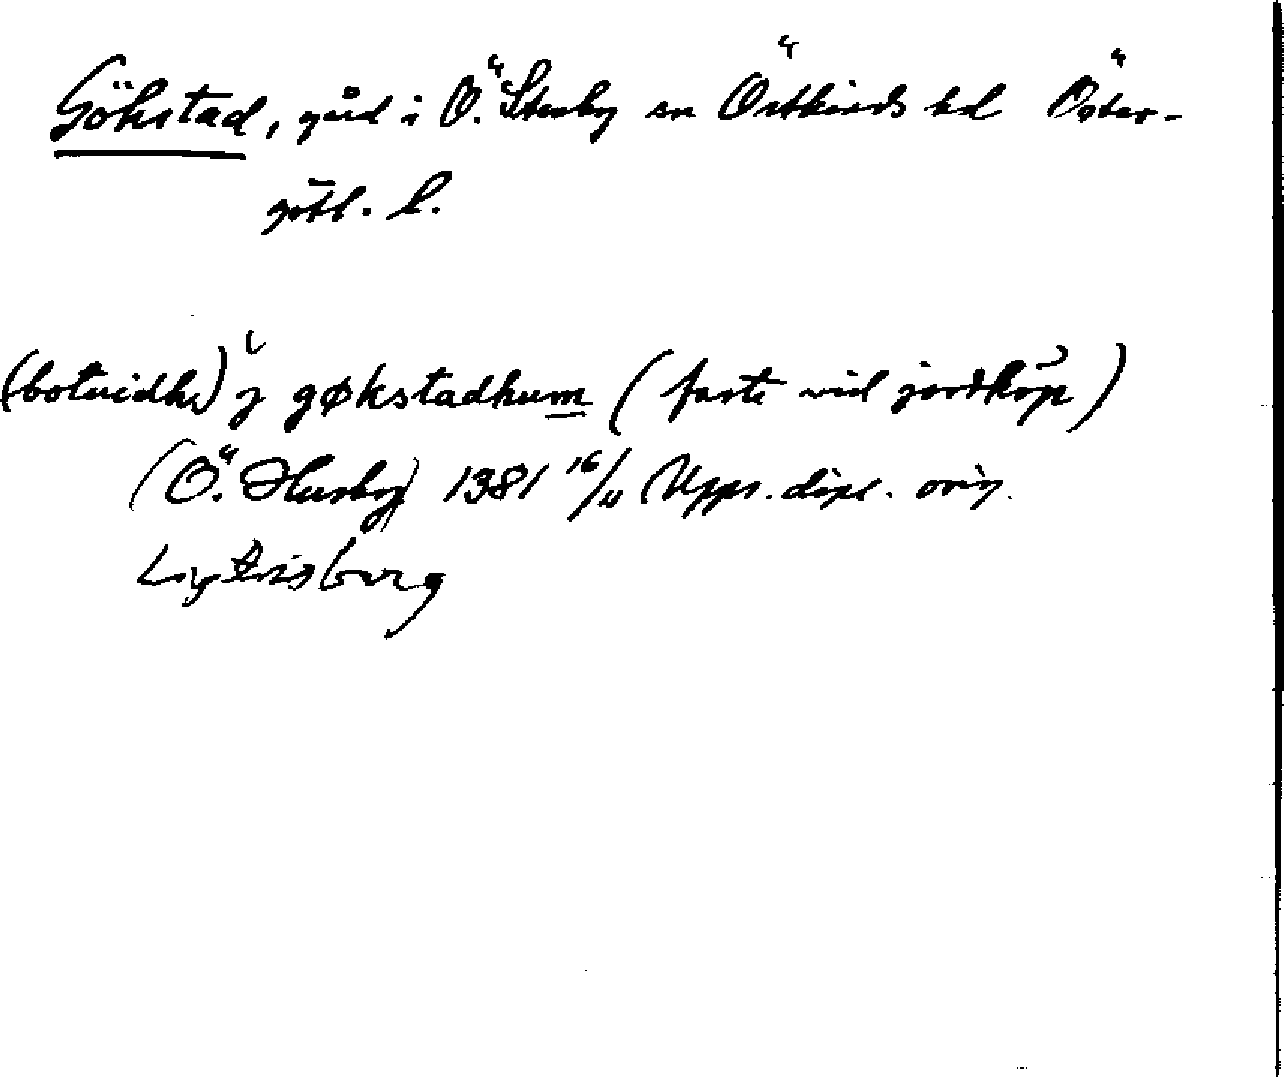 Gökstad, gård i Ö. Stenby sn Östkinds hd Öster-
götl. l.
(botuidh) j gøkstadhum (faste vid jordköp)
(Ö. Husby) 1381 16/11 Upps. dipl. orig.
Löfstaborg